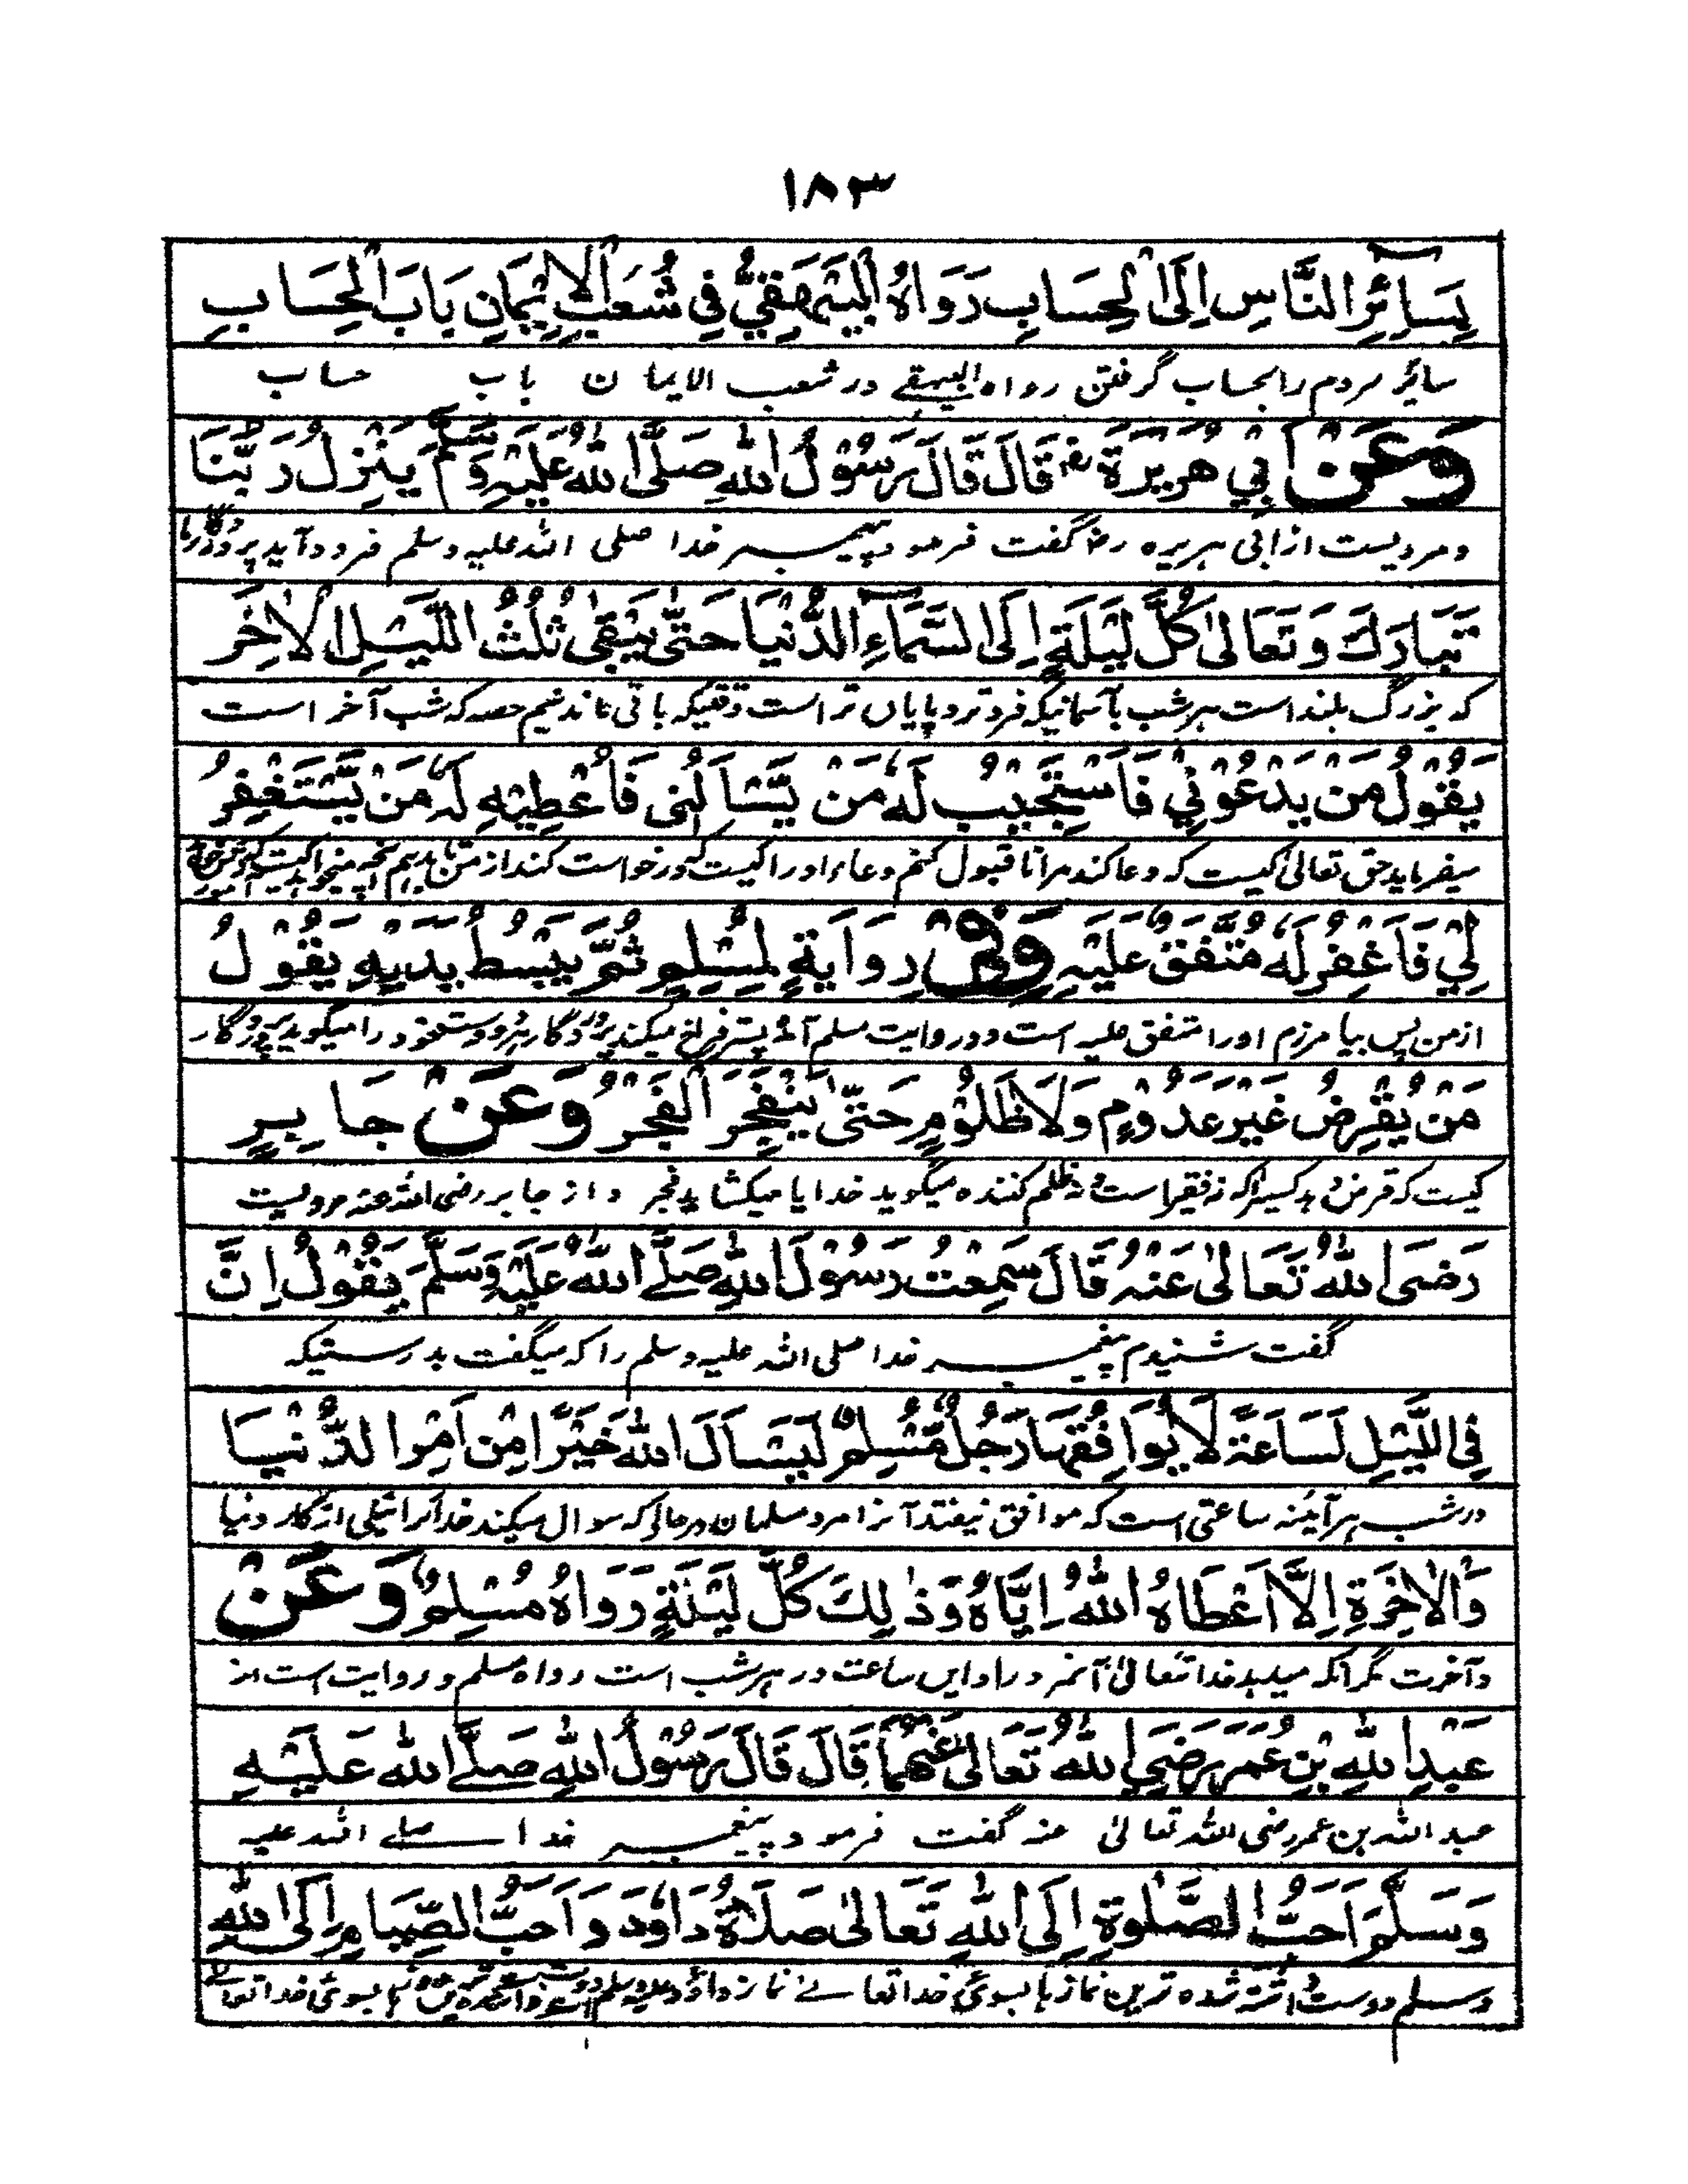 ١٨٣
بِسَائِرِ النَّاسِ اِلَی الْحِسَابِ رَوَاهُ الْبَيْهَقِيُّ فِي شُعَبِ الْاِيْمَانِ بَابَ الْحِسَابِ
سائر مردم را بحساب گرفتن رواه البیهقے در شعب الایمان باب حساب
وَعَنْ اَبِي هُرَيْرَةَ رض قَالَ قَالَ رَسُوْلُ اللّٰهِ صَلَّی اللّٰهُ عَلَيْهِ وَسَلَّمَ يَنْزِلُ رَبُّنَا
و مرویست از ابی هریره رض گفت فرمود پیمبر خدا صلی الله علیه وسلم فرود آید پروردگار ما
تَبَارَكَ وَتَعَالٰی كُلَّ لَيْلَةٍ اِلَی السَّمَآءِ الدُّنْيَا حَتّٰی يَبْقٰی ثُلُثُ اللَّيْلِ الْاٰخِرَ
که بزرگ بلند است هر شب بآسمانیکه فروتر و پایاں تر است وقتیکه باقی ماند سیم حصه که شب آخر است
يَقُوْلُ مَنْ يَدْعُوْنِيْ فَاَسْتَجِيْبُ لَهٗ مَنْ يَّسْاَلُنِی فَاُعْطِيْهِ لَهٗ مَنْ يَّسْتَغْفِرُ
میفرماید حق تعالی کیست که دعا کند مرا تا قبول کنم دعاء او را کیست که درخواست کند از من تا بدهم آنچه میخواهد کیست که
لِيْ فَاَغْفِرُ لَهٗ مُتَّفَقٌ عَلَيْهِ وَفِيْ رِوَايَةٍ لِمُسْلِمٍ ثُمَّ يَبْسُطُ يَدَيْهِ يَقُوْلُ
از من پس بیامرزم او را متفق علیه است و در روایت مسلم آمده پستر فراخ میکند پروردگار هر دو دست خود را میگوید پروردگار
مَنْ يُقْرِضُ غَيْرَ عَدُوْمٍ وَلَا ظَلُوْمٍ حَتّٰی يَنْفَجِرَ الْفَجْرُ وَعَنْ جَابِرٍ
کیست که قرض دهد کسیرا که نه فقیر است و نه ظلم کننده میگوید خدا یا میکشاید فجر و از جابر رضی الله عنه مرویست
رَضِیَ اللّٰهُ تَعَالٰی عَنْهُ قَالَ سَمِعْتُ رَسُوْلَ اللّٰهِ صَلَّے اللّٰهُ عَلَيْهِ وَسَلَّمَ يَقُوْلُ اِنَّ
گفت شنیدم پیغمبر خدا صلی الله علیه وسلم را که میگفت بدرستیکه
فِی اللَّيْلِ لَسَاعَةً لَا يُوَافِقُهَا رَجُلٌ مُّسْلِمٌ لِيَسْاَلَ اللّٰهَ خَيْرًا مِنْ اَمْرِ الدُّنْيَا
در شب هر آئنه ساعتی است که موافق نیفتد آنرا مرد مسلمان در حالی که سوال میکند خدا را نیکی از کار دنیا
وَالْاٰخِرَةِ اِلَّا اَعْطَاهُ اللّٰهُ اِيَّاهُ وَذٰلِكَ كُلَّ لَيْلَةٍ رَوَاهُ مُسْلِمٌ وَعَنْ
و آخرت مگر آنکه میدهد خدا تعالی آنمرد را و ایں ساعت در هر شب است رواه مسلم و روایت است از
عَبْدِ اللّٰهِ بْنِ عُمَرَ رَضِيَ اللّٰهُ تَعَالٰی عَنْهُمَا قَالَ قَالَ رَسُوْلُ اللّٰهِ صَلَّے اللّٰه عَلَيْهِ
عبد الله بن عمر رضی الله تعالی عنه گفت فرمود پیغمبر خدا صلے الله علیه
وَسَلَّمَ اَحَبُّ الصَّلٰوةِ اِلَی اللّٰهِ تَعَالٰی صَلَاةُ دَاوٗدَ وَاَحَبُّ الصِّيَامِ اِلَی اللّٰهِ
وسلم دوست داشته شده ترین نمازها بسوئ خدا تعالے نماز داؤد بسوئ خدا تعالے